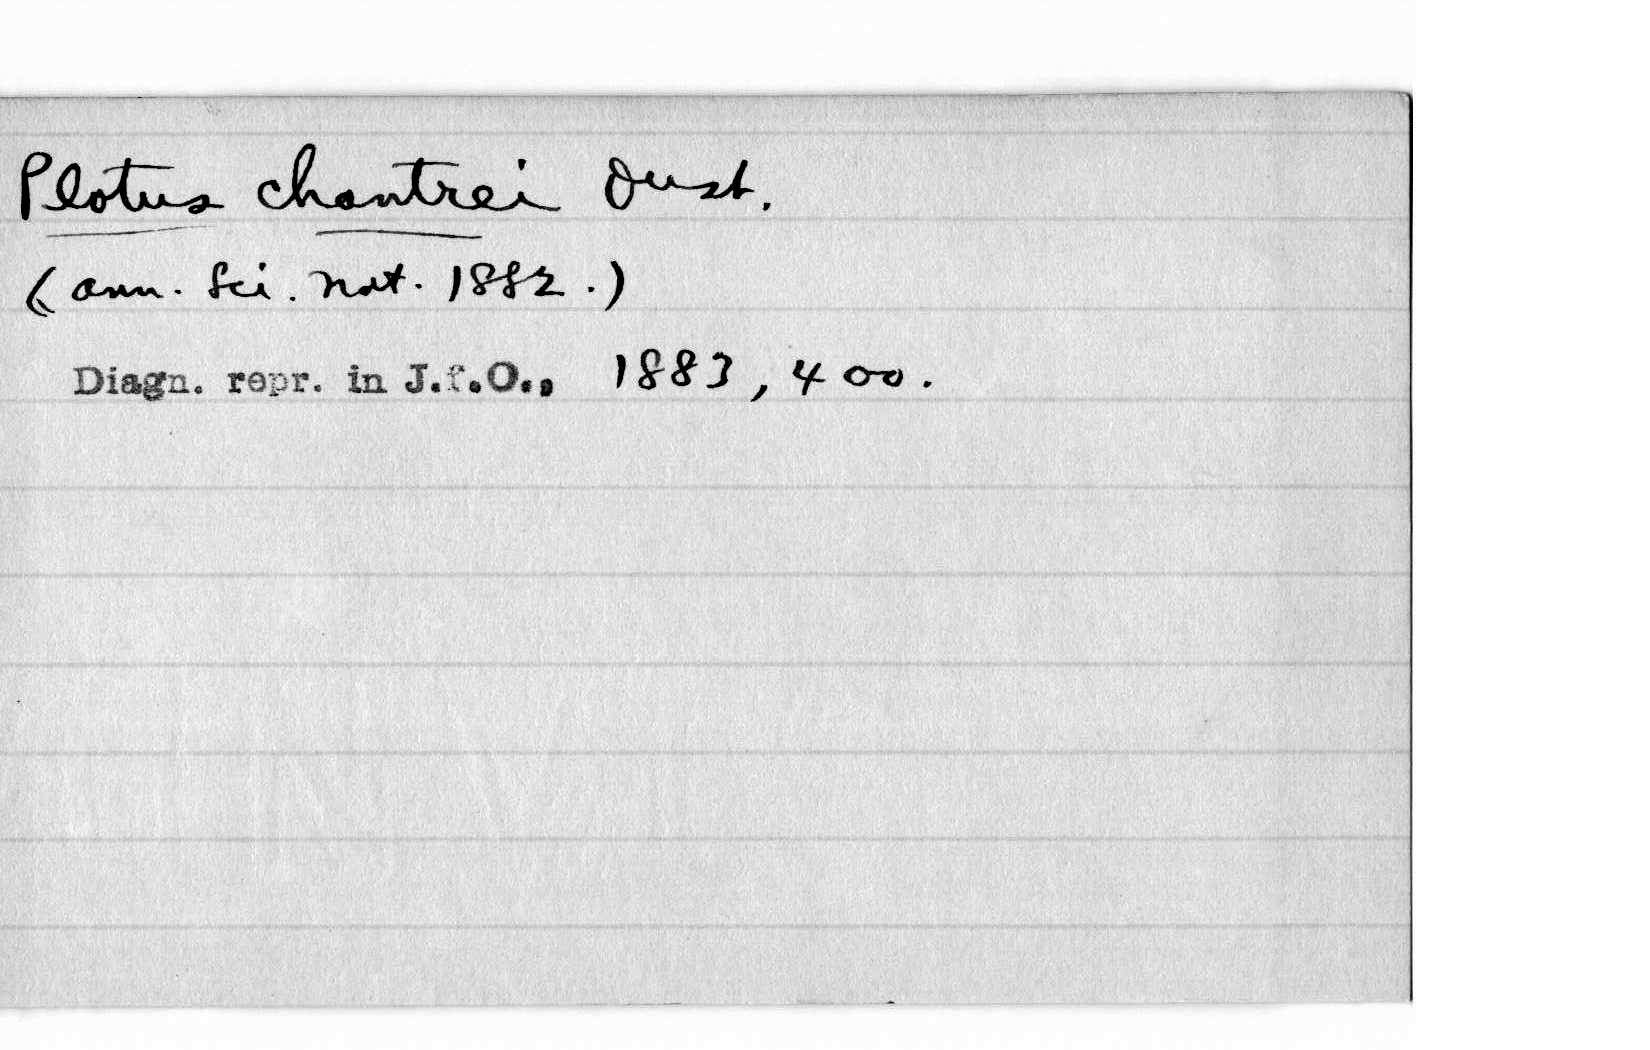 Plotus chantrei Oust.
(Ann. Sci. Nat. 1882.)
Diagn. repr. in J.f.O., 1883, 400.